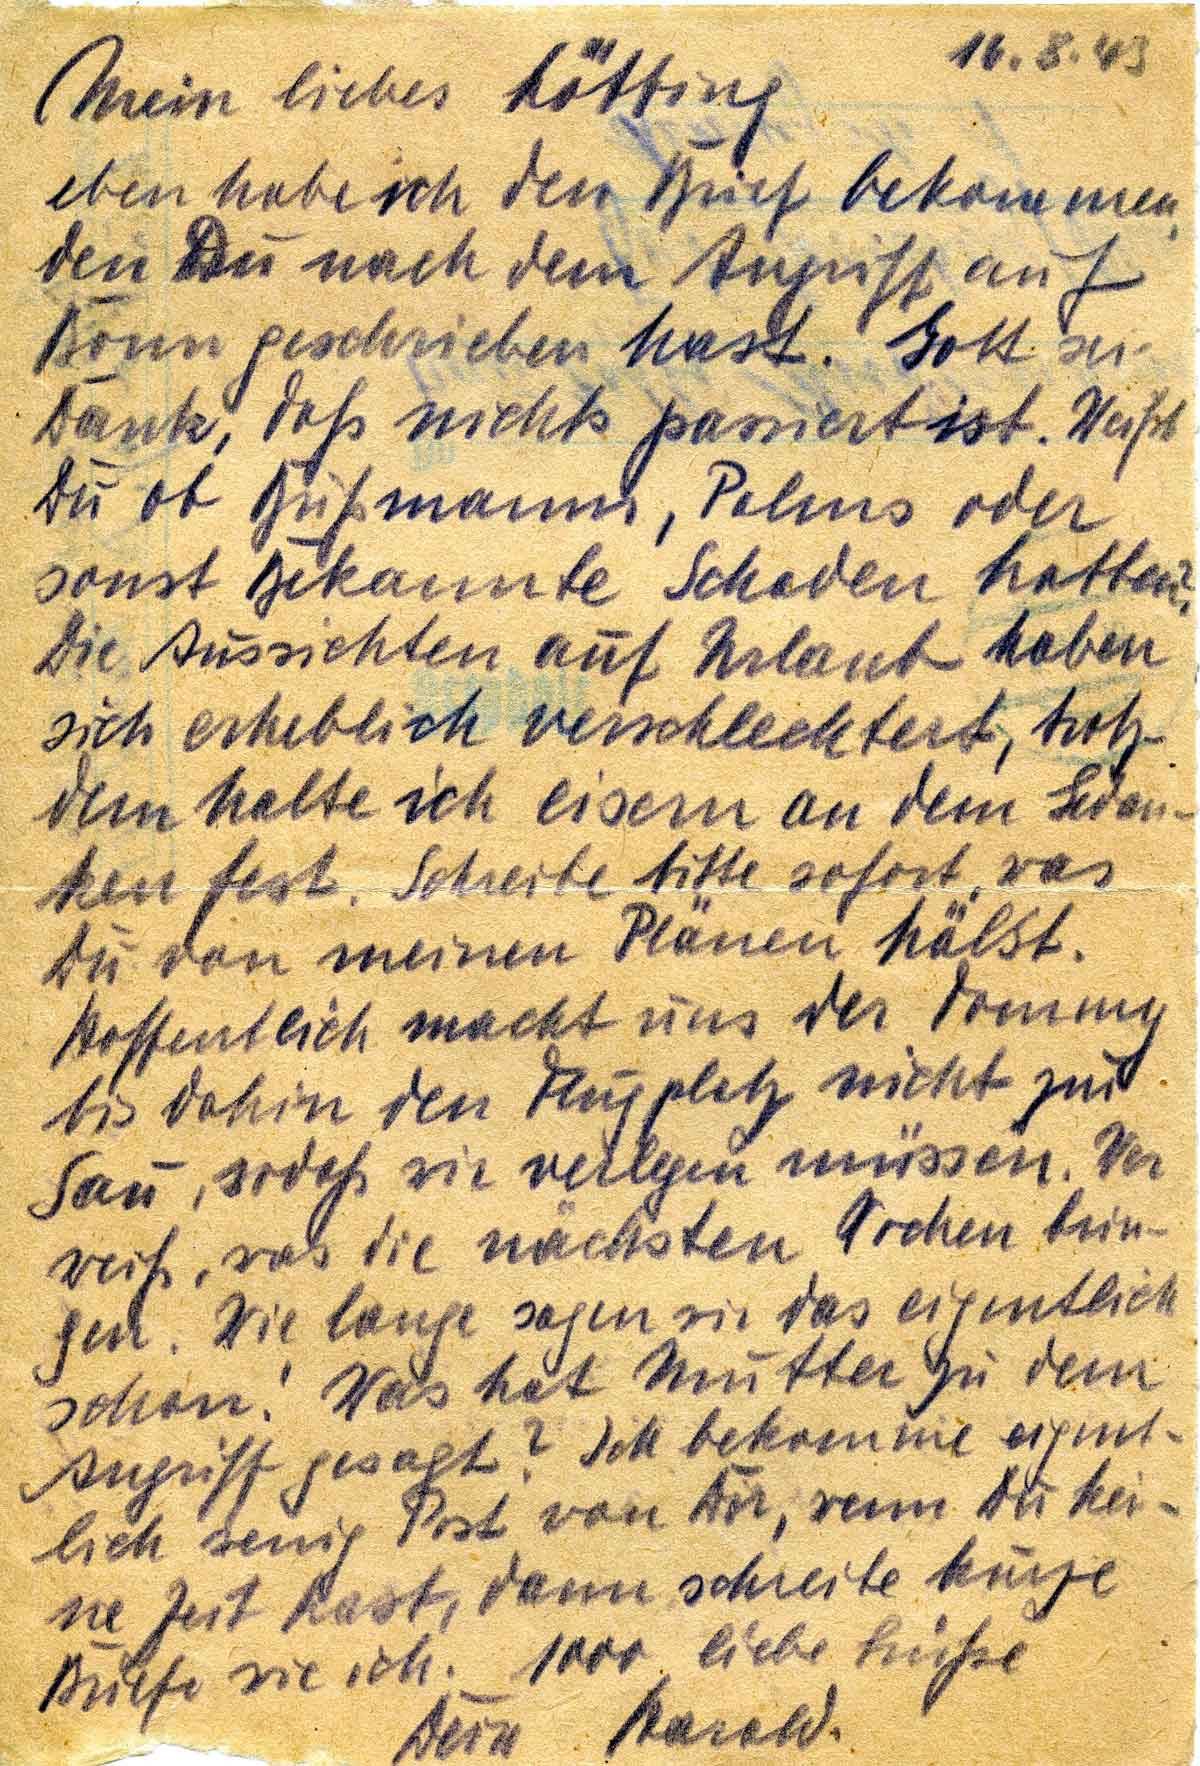 16.8.43
Mein liebes Kötting
eben habe ich den Brief bekommen,
den Du nach dem Angriff auf
Bonn geschrieben hast. Gott sei
Dank, daß nichts passiert ist. Weißt
Du ob Bußmanns, Palms oder
sonst Bekannte Schaden hatten?
Die Aussichten auf Urlaub haben
sich erheblich verschlechtert, trotz-
dem halte ich eisern an dem Gedan-
ken fest. Schreibe bitte sofort, was
Du von meinen Plänen hälst.
Hoffentlich macht uns der Tommy
bis dahin den Flugplatz nicht zur
Sau, sodaß wir verlegen müssen. Wer
weiß, was die nächsten Wochen brin-
gen. Wie lange sagen wir das eigentlich
schon! Was hat Mutter zu dem
Angriff gesagt? Ich bekomme eigent-
lich wenig Post von Dir, wenn Du kei-
ne Zeit hast, dann schreibe kurze
Briefe wie ich. 1000 liebe Grüße
Dein Harold.